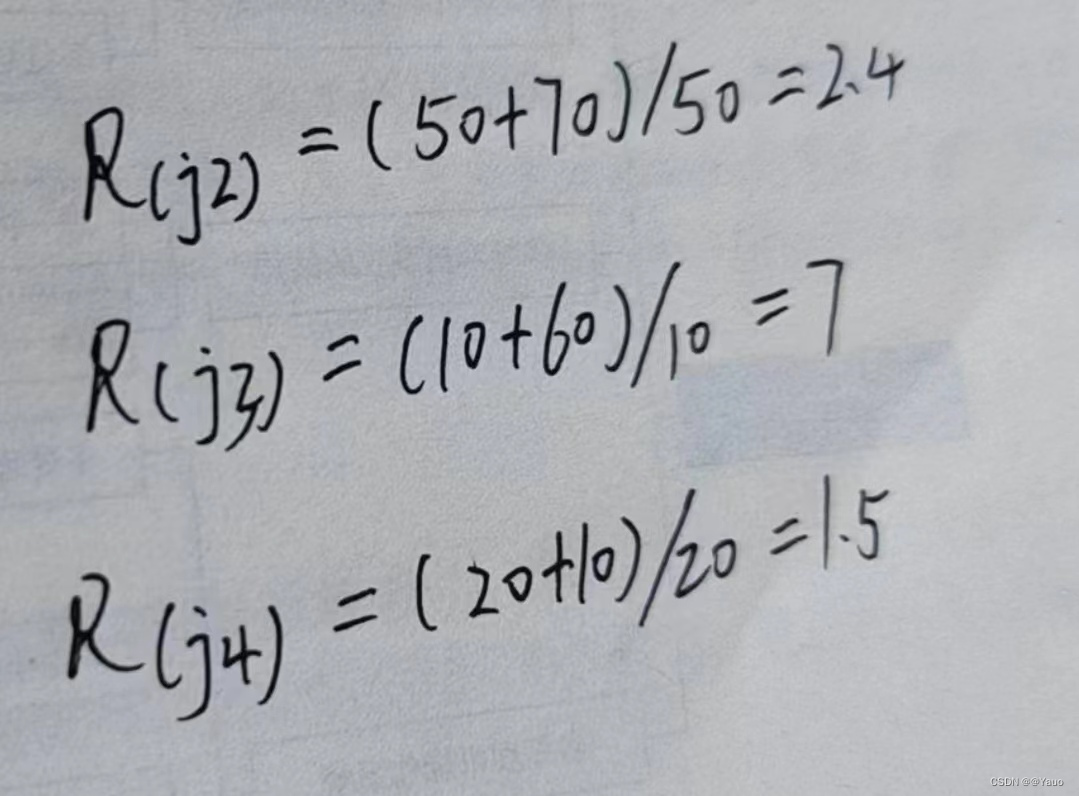 R(j2) = (50+70)/50 = 2.4
R(j3) = (10+60)/10 = 7
R(j4) = (20+10)/20 = 1.5
CSDN @@Yauo